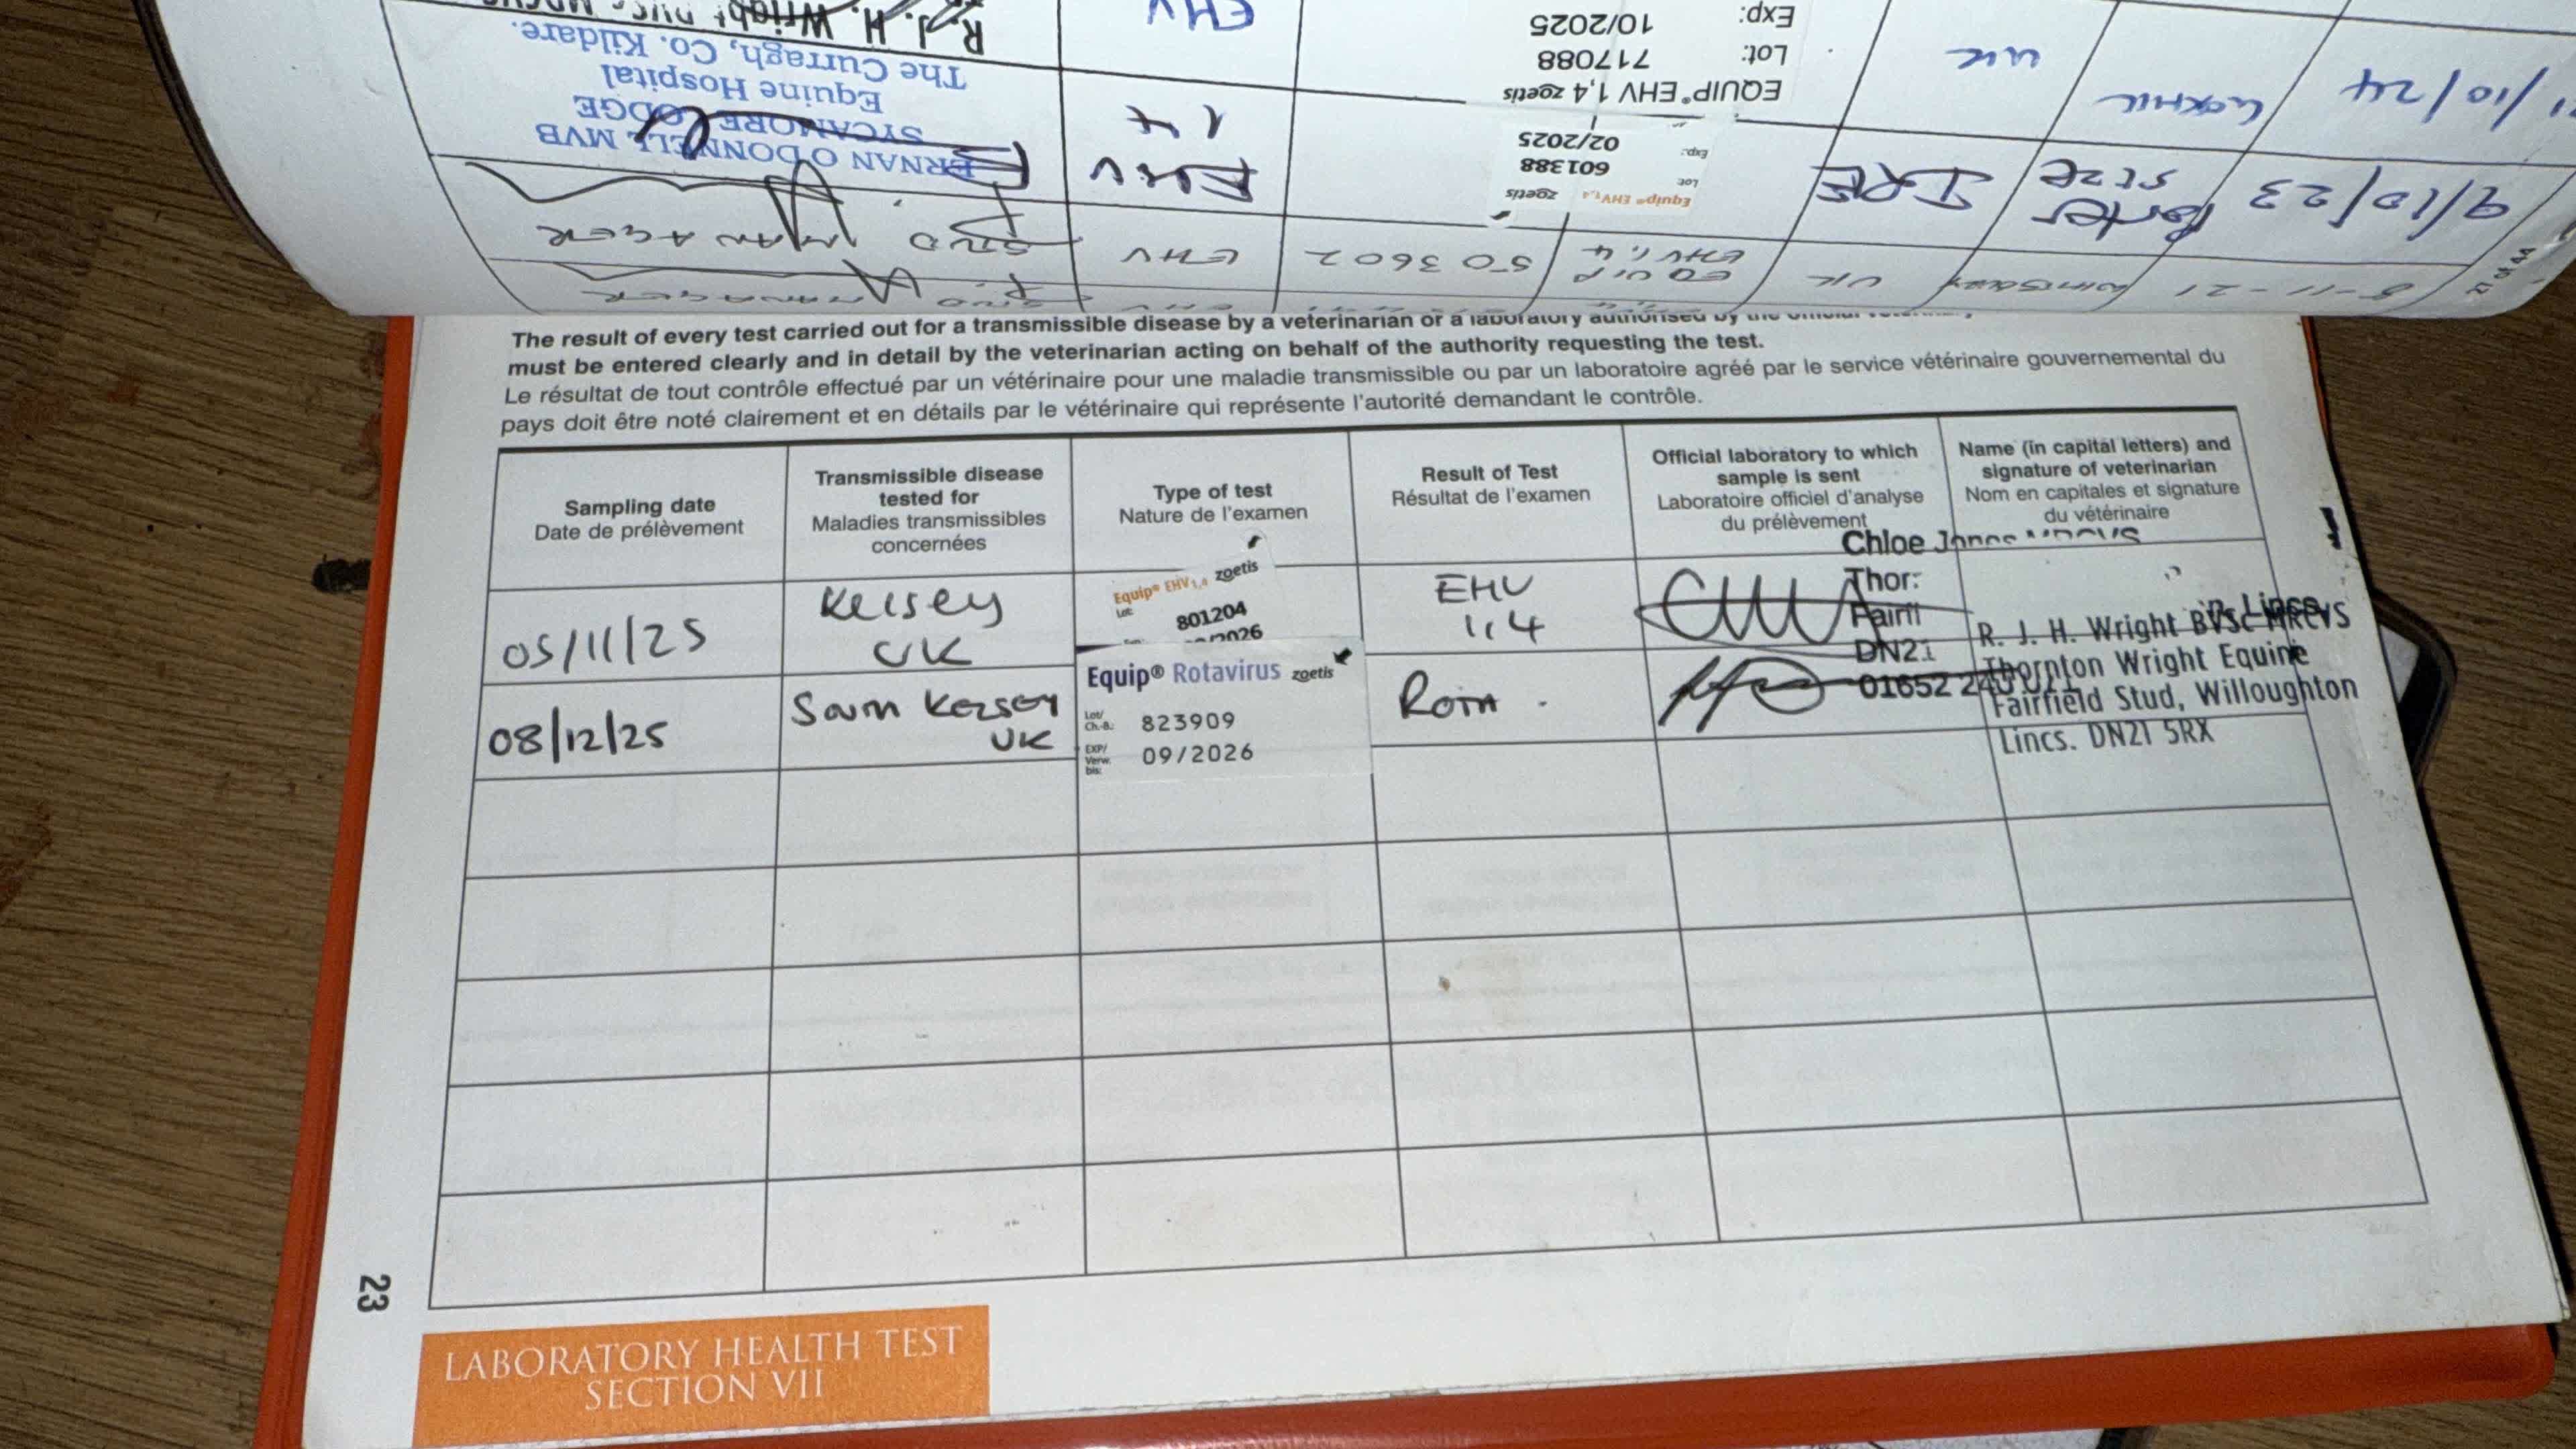 R. J. H. Wright
EHV
Exp:
10/2025
Lot:
717088
EQUIP® EHV 1,4 zoetis
UK
11/10/24
ERNAN O'DONNELL MVB
SYCAMORE LODGE
Equine Hospital
The Curragh, Co. Kildare.
EHV
1,4
Equip® EHV 1,4 zoetis
Lot
601388
Exp:
02/2025
IRE
9/10/23
STUD MANAGER
EHV
503602
EQUIP
EHV 1,4
UK
8-11-21
MANAGER
The result of every test carried out for a transmissible disease by a veterinarian or a laboratory authorised by the
must be entered clearly and in detail by the veterinarian acting on behalf of the authority requesting the test.
Le résultat de tout contrôle effectué par un vétérinaire pour une maladie transmissible ou par un laboratoire agréé par le service vétérinaire gouvernemental du
pays doit être noté clairement et en détails par le vétérinaire qui représente l'autorité demandant le contrôle.
Sampling date
Date de prélèvement
Transmissible disease
tested for
Maladies transmissibles
concernées
Type of test
Nature de l'examen
Result of Test
Résultat de l'examen
Official laboratory to which
sample is sent
Laboratoire officiel d'analyse
du prélèvement
Name (in capital letters) and
signature of veterinarian
Nom en capitales et signature
du vétérinaire
05/11/25
Kelsey
UK
Equip® EHV 1,4 zoetis
Lot:
801204
EHV
1,4
Chloe
DN21
01652
08/12/25
South Kelsey
UK
Equip® Rotavirus zoetis
Lot/
Ch.-B.:
823909
EXP/
Verw.
bis:
09/2026
Rota
R. J. H. Wright BVSc MRCVS
Thornton Wright Equine
Fairfield Stud, Willoughton
Lincs. DN21 5RX
23
LABORATORY HEALTH TEST
SECTION VII